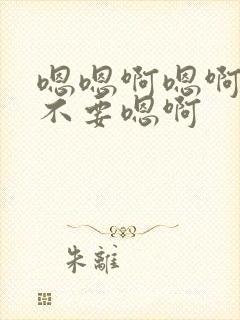 嗯嗯啊嗯啊
不要嗯啊
朱離